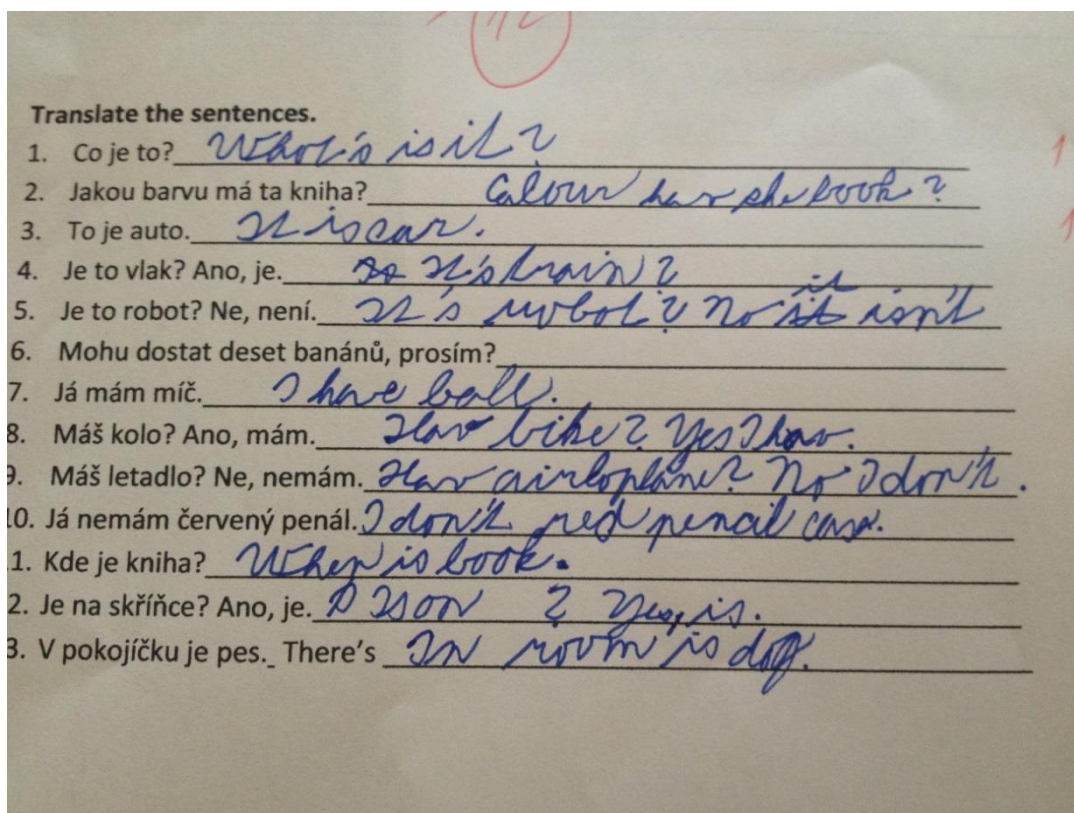 12
Translate the sentences.
1. Co je to? What's is it? 1
2. Jakou barvu má ta kniha? Colour hav she book?
3. To je auto. It is car. 1
4. Je to vlak? Ano, je. It's train?
5. Je to robot? Ne, není. It's robot? No it isn't
6. Mohu dostat deset banánů, prosím?
7. Já mám míč. I have ball.
8. Máš kolo? Ano, mám. Hav bike? Yes I hav.
9. Máš letadlo? Ne, nemám. Hav airloplan? No I don't.
10. Já nemám červený penál. I don't red pencil case.
1. Kde je kniha? When is book.
2. Je na skříňce? Ano, je. Is on ? Yes, is.
3. V pokojíčku je pes. There's In room is dog.